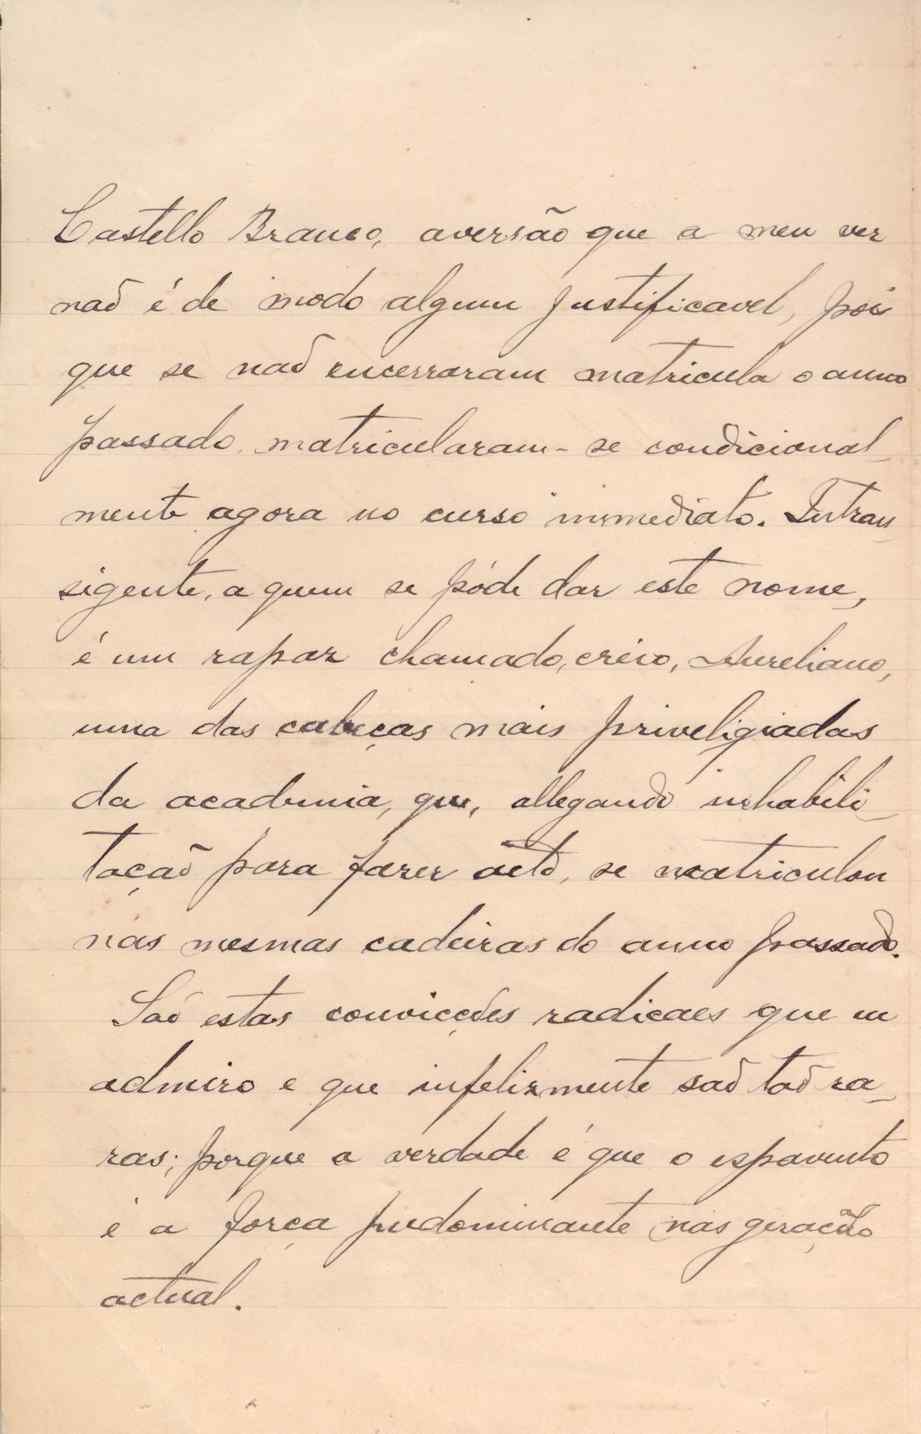 Castello Branco, aversão que a meu ver
naõ é de modo algum justificavel, pois
que se naõ encerraram matricula o anno
passado matricularam-se condicional
mente agora no curso immediato. Intran
sigente, a quem se póde dar este nome,
é um rapaz chamado, creio, Aureliano,
uma das cabeças mais priveligiadas
da academia, que, allegando inhabili
taçaõ para fazer acto, se matriculou
nas mesmas cadeiras do anno passado.
Saõ estas convicções radicaes que eu
admiro e que infelizmente saõ taõ ra_
ras; porque a verdade é que o espavento
é a força predominante nas geração
actual.